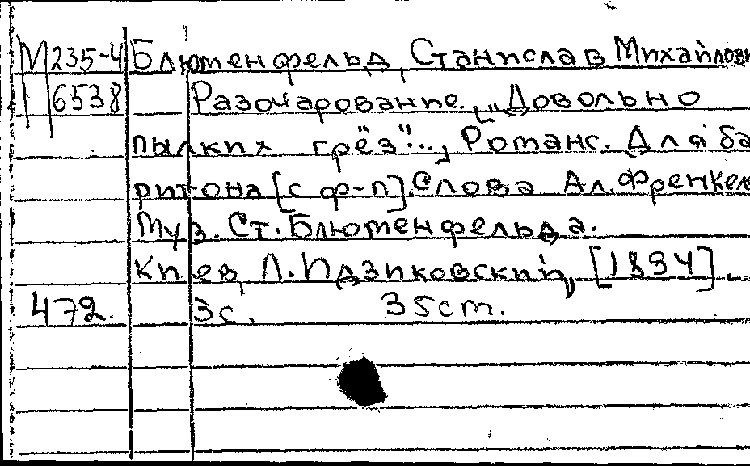 М235-4 Блюменфельд, Станислав Михайлови
П 6538 Разочарование. ["Довольно
пылких грёз"...] Романс. Для ба
ритона [с ф-п]. Слова Ал. Френкел
Муз. Ст. Блюменфельда.
Киев, Л. Идзиковский, [1894].
472. 3с. 35cm.